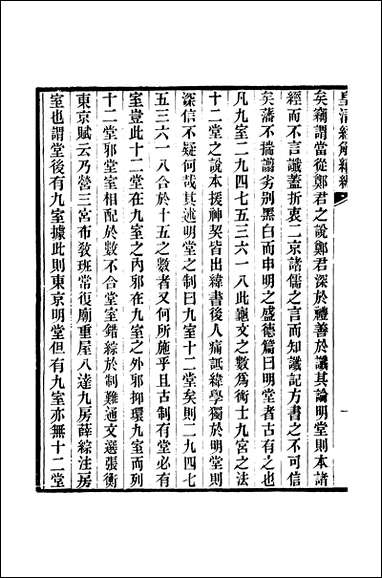 皇清經解續編
一
矣竊謂當從鄭君之說鄭君深於禮善於讖其論明堂則本諸
經而不言讖蓋折衷二京諸儒之言而知讖記方書之不可信
矣藩不揣譾劣别黑白而申明之盛德篇曰明堂者古有之也
凡九室二九四七五三六一八此龜文之數爲術士九宮之法
十二堂之說本援神契皆出緯書後人痛詆緯學獨於明堂則
深信不疑何哉其述明堂之制曰九室十二堂矣則二九四七
五三六一八合於十五之數者又何所施乎且古制有堂必有
室豈此十二堂在九室之内邪在九室之外邪抑環九室而列
十二堂邪堂室相配於數不合堂室錯綜於制難通文選張衡
東京賦云乃營三宮布敎班常復廟重屋八達九房薛綜注房
室也謂堂後有九室據此則東京明堂但有九室亦無十二堂